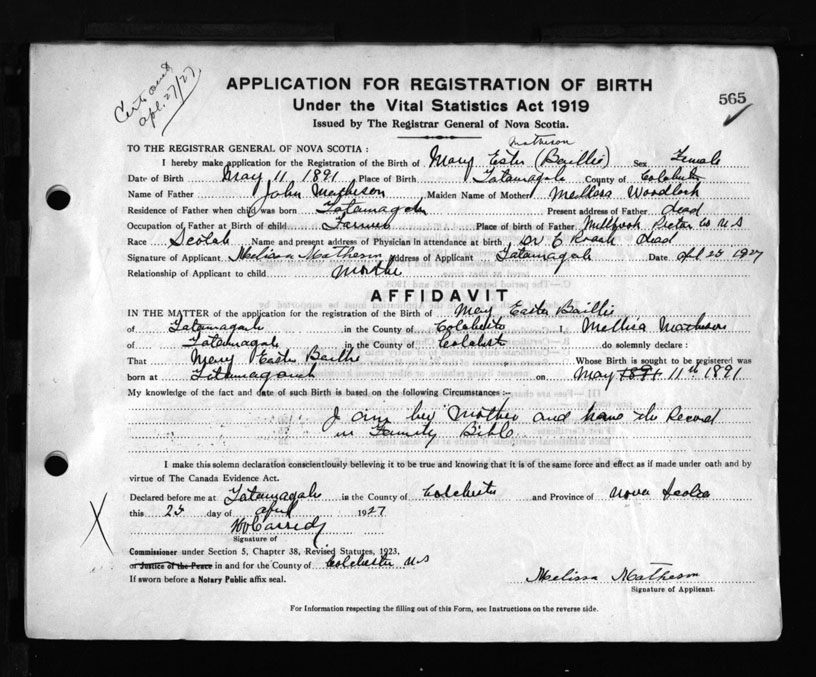 Certs and
apl. 27/27
APPLICATION FOR REGISTRATION OF BIRTH
565
Under the Vital Statistics Act 1919
Issued by The Registrar General of Nova Scotia.
Matheson
TO THE REGISTRAR GENERAL OF NOVA SCOTIA :
I hereby make application for the Registration of the Birth of Mary Ester (Baillie) Sex Female
Date of Birth May 11 1891 Place of Birth Tatamagah County of Colchester
Name of Father John Matheson Maiden Name of Mother Mellissa Woodlock
Residence of Father when child was born Tatamagah Present address of Father dead
Occupation of Father at Birth of child Farmer Place of birth of Father Millbrook Pictou Co N S
Race Scotch Name and present address of Physician in attendance at birth Dr E Roach dead
Signature of Applicant Melissa Matheson Address of Applicant Tatamagah Date Apl 25 1927
Relationship of Applicant to child Mothe
AFFIDAVIT
IN THE MATTER of the application for the registration of Birth of Mary Easter Baillie
of Tatamagah in the County of Colchester I, Mellisa Matheson
of Tatamagah in the County of Colchest do solemnly declare :
That Mary Easter Baillie Whose Birth is sought to be registered was
born at Tatamagouch on May 1891 11th 1891
My knowledge of the fact and date of such Birth is based on the following Circumstances :-
I am her Mother and have the Record
in Family Bible
I make this solemn declaration conscientiously believing it to be true and knowing that it is of the same force and effect as if made under oath and by
virtue of The Canada Evidence Act.
Declared before me at Tatamagah in the County of Colchester and Province of Nova Scotia
this 25 day of April 1927
Cassidy
Signature of
Commissioner under Section 5, Chapter 38, Revised Statutes, 1923,
or Justice of the Peace in and for the County of Colchester N S
If sworn before a Notary Public affix seal.
Melissa Matheson
Signature of Applicant.
For Information respecting the filling out of this Form, see Instructions on the reverse side.